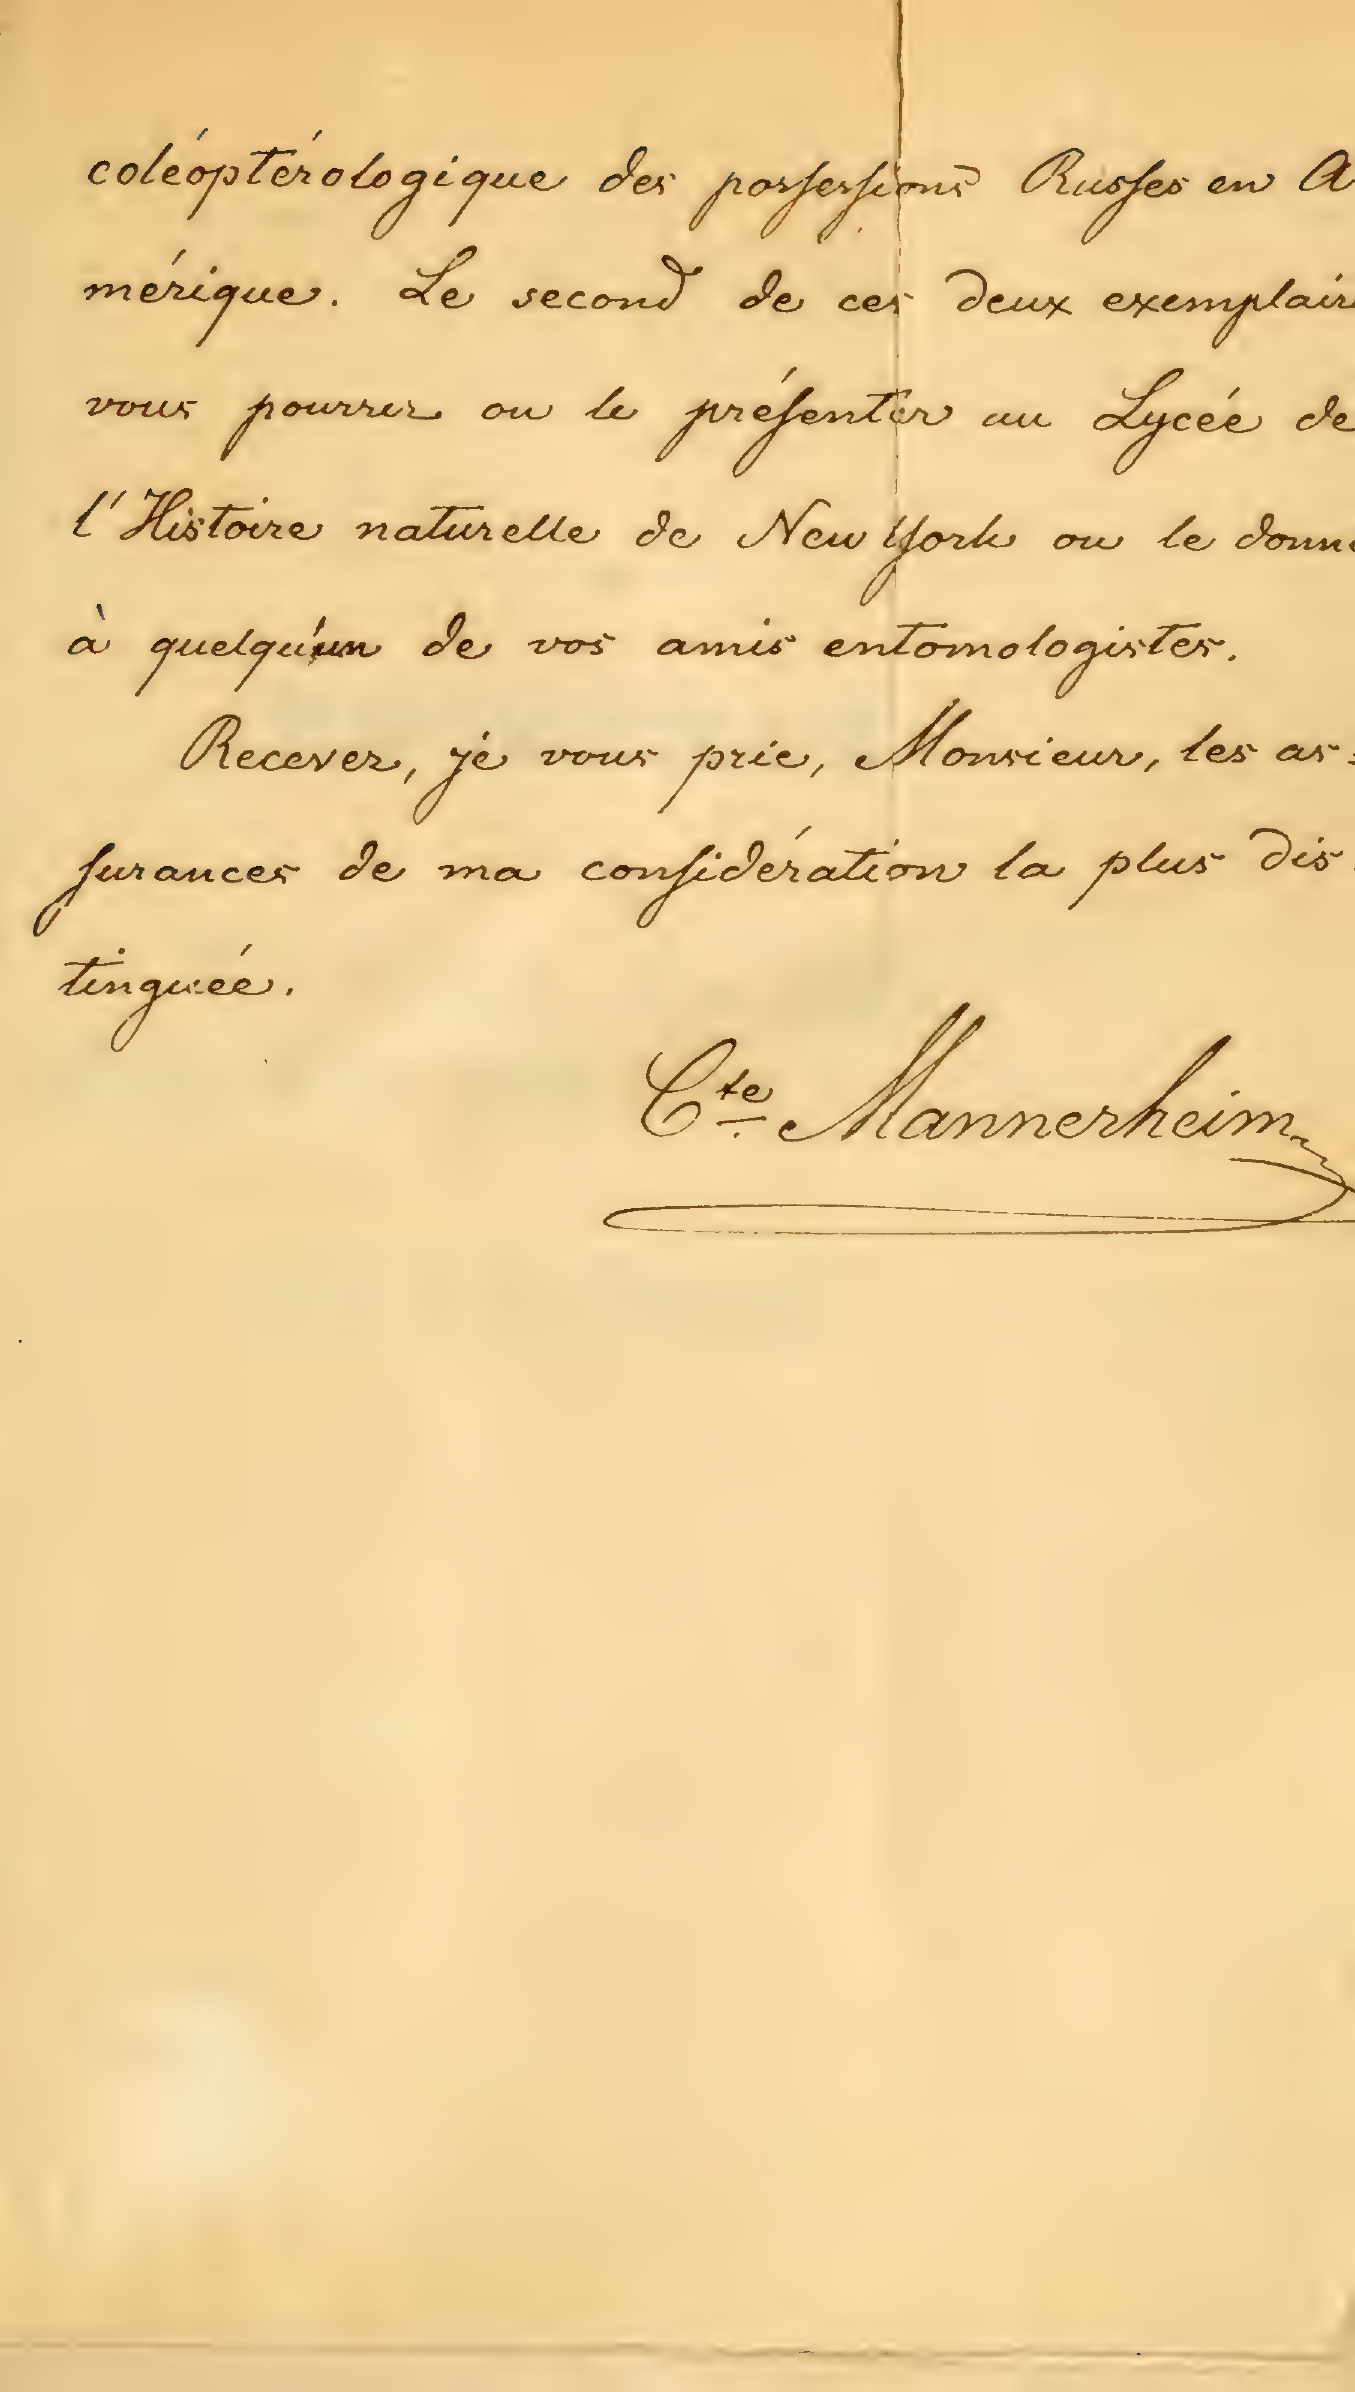 coléoptérologique des possessions Russes en A
mérique. Le second de ces deux exemplair
vous pourrez ou le présenter au Lycée de
l'Histoire naturelle de New York ou le donne
à quelqu'un de vos amis entomologistes.
Recevez, je vous prie, Monsieur, les as=
surances de ma considération la plus dis
tinguée.
Cte Mannerheim